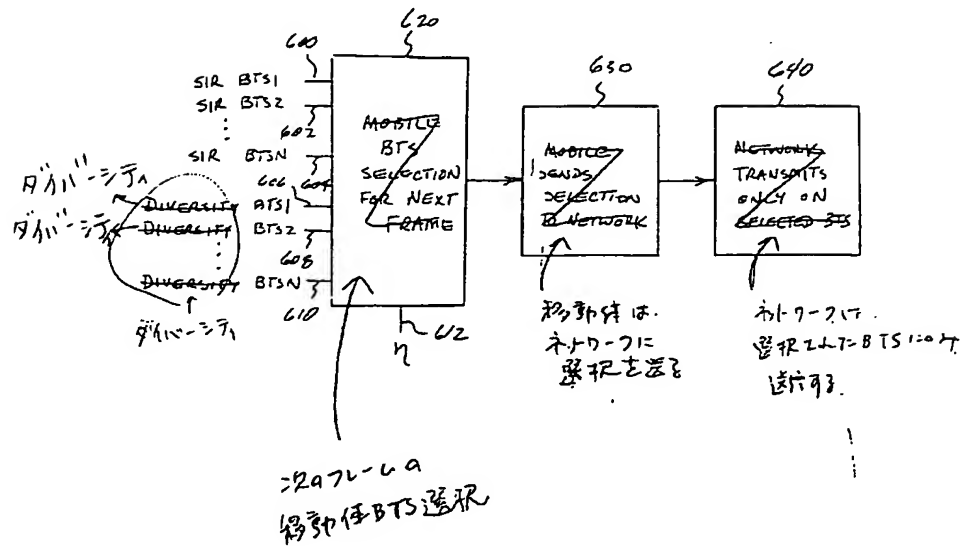 620
600
630
640
SIR BTS1
SIR BTS2
602
SIR BTSN
604
606
ダイバーシティ
DIVERSITY BTS1
ダイバーシティ
DIVERSITY BTS2
608
DIVERSITY BTSN
610
ダイバーシティ
612
η
MOBILE
BTS
SELECTION
FOR NEXT
FRAME
MOBILE
SENDS
SELECTION
TO NETWORK
NETWORK
TRANSMITS
ONLY ON
SELECTED BTS
移動体は
ネットワークに
選択を送る
ネットワークは
選択されたBTSにのみ
送信する
次のフレームの
移動体BTS選択